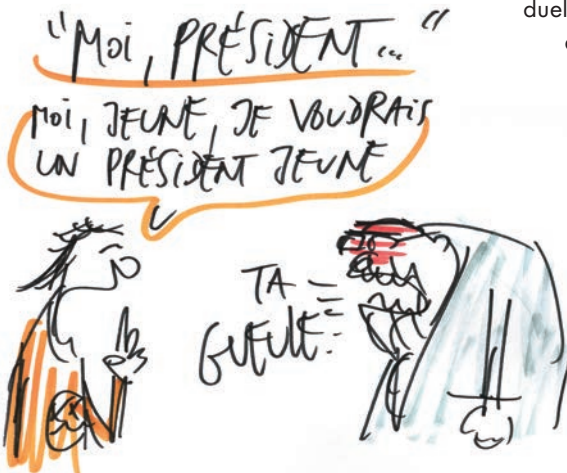 duel
"Moi, PRÉSIDENT..."
MOI, JEUNE, JE VOUDRAIS
UN PRÉSIDENT JEUNE
TA
GUEULE!